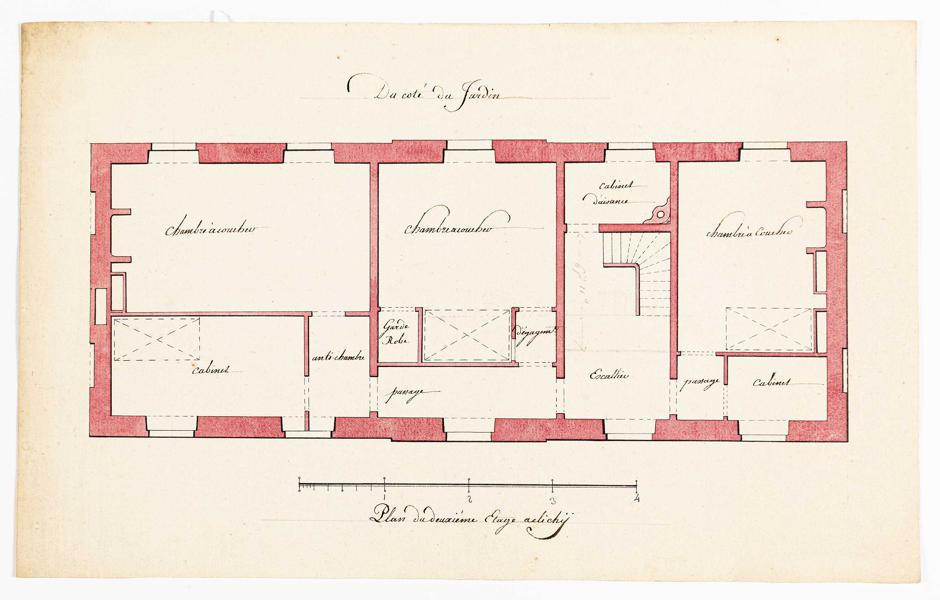 Du coté du Jardin
chambre a coucher
chambre a coucher
cabinet
d'aisance
chambre a Coucher
Garde
Robe
dégagmt
cabinet
anti chambre
passage
Escallier
passage
Cabinet
1 2 3 4
Plan du deuxiéme Etage